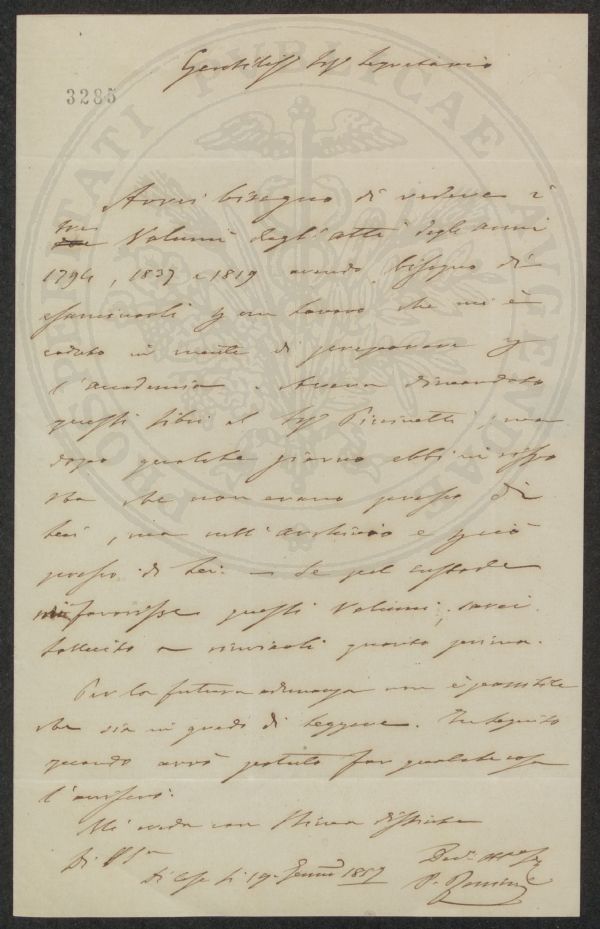 Gentiliss. Sigr. Segretario
3285
Avrei bisogno di vedere i
tre Volumi degl'atti degli anni
1794, 1837 e 1819 avendo bisogno di
esaminarli per un lavoro che mi è
caduto in mente di preparare per
l'accademia. Aveva dimandato
questi libri al Sigr. , ma
dopo qualche giorno ebbi in rispo
sta che non erano presso di
lui, ma nell'archivio e perciò
presso di Lei. — Se pel custode
mi favorisse questi Volumi, sarei
sollecito a rinviarli quanto prima.
Per la futura adunanza non è possibile
che sia in grado di leggere. In seguito
quando avrò potuto far qualche cosa
l'avviserò.
Mi creda con stima distinta
Di VSa
Di Casa li 19 Genn 1857
Dev.
P.
PROSPERITATI PUBLICAE AUGENDAE